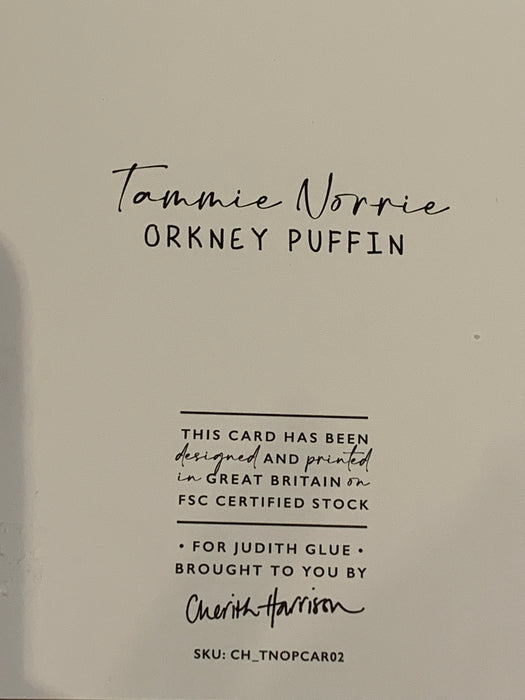 Tammie Norrie
ORKNEY PUFFIN
THIS CARD HAS BEEN
designed AND printed
in GREAT BRITAIN on
FSC CERTIFIED STOCK
• FOR JUDITH GLUE •
BROUGHT TO YOU BY
Cherith Harrison
SKU: CH_TNOPCAR02